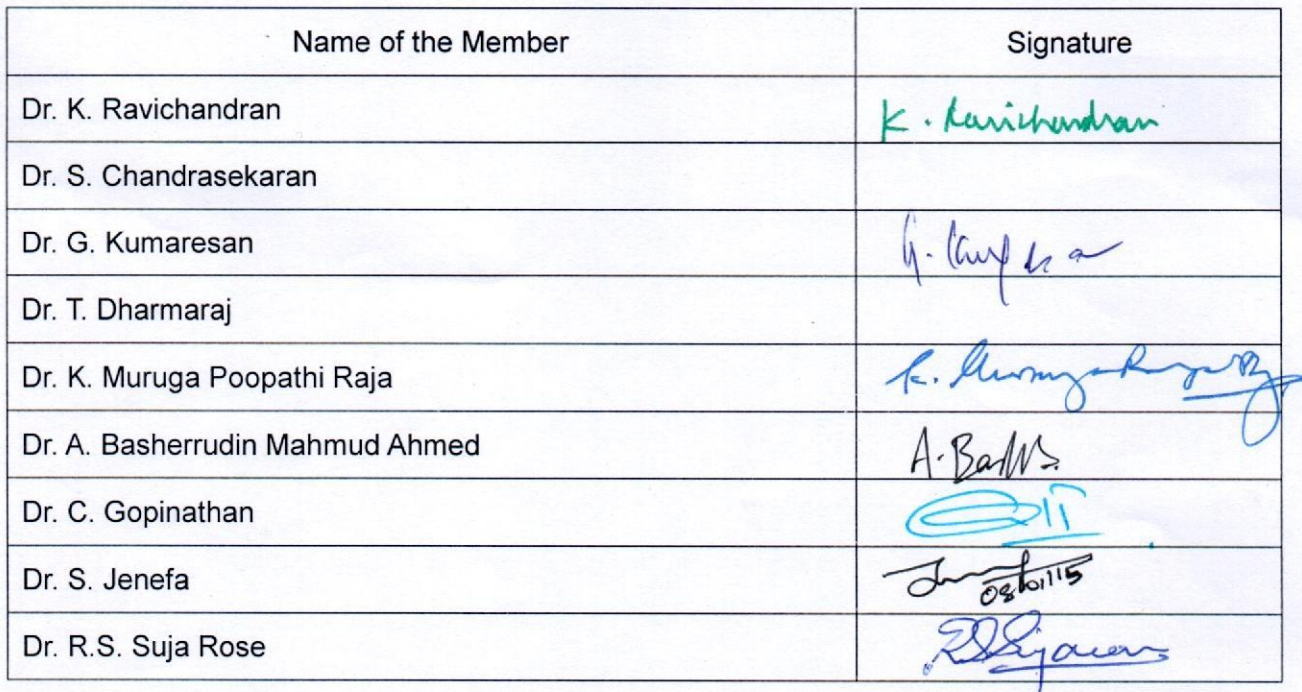 Name of the Member Signature
Dr. K. Ravichandran K. Ravichandran
Dr. S. Chandrasekaran
Dr. G. Kumaresan G.
Dr. T. Dharmaraj
Dr. K. Muruga Poopathi Raja K.
Dr. A. Basherrudin Mahmud Ahmed A.
Dr. C. Gopinathan
Dr. S. Jenefa
08/01/15
Dr. R.S. Suja Rose